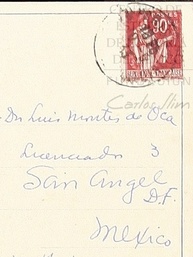 POSTES
90c
Carlos Slim
Dn Luis Montes de Oca
Licenciado 3
San Angel
D.F.
Mexico